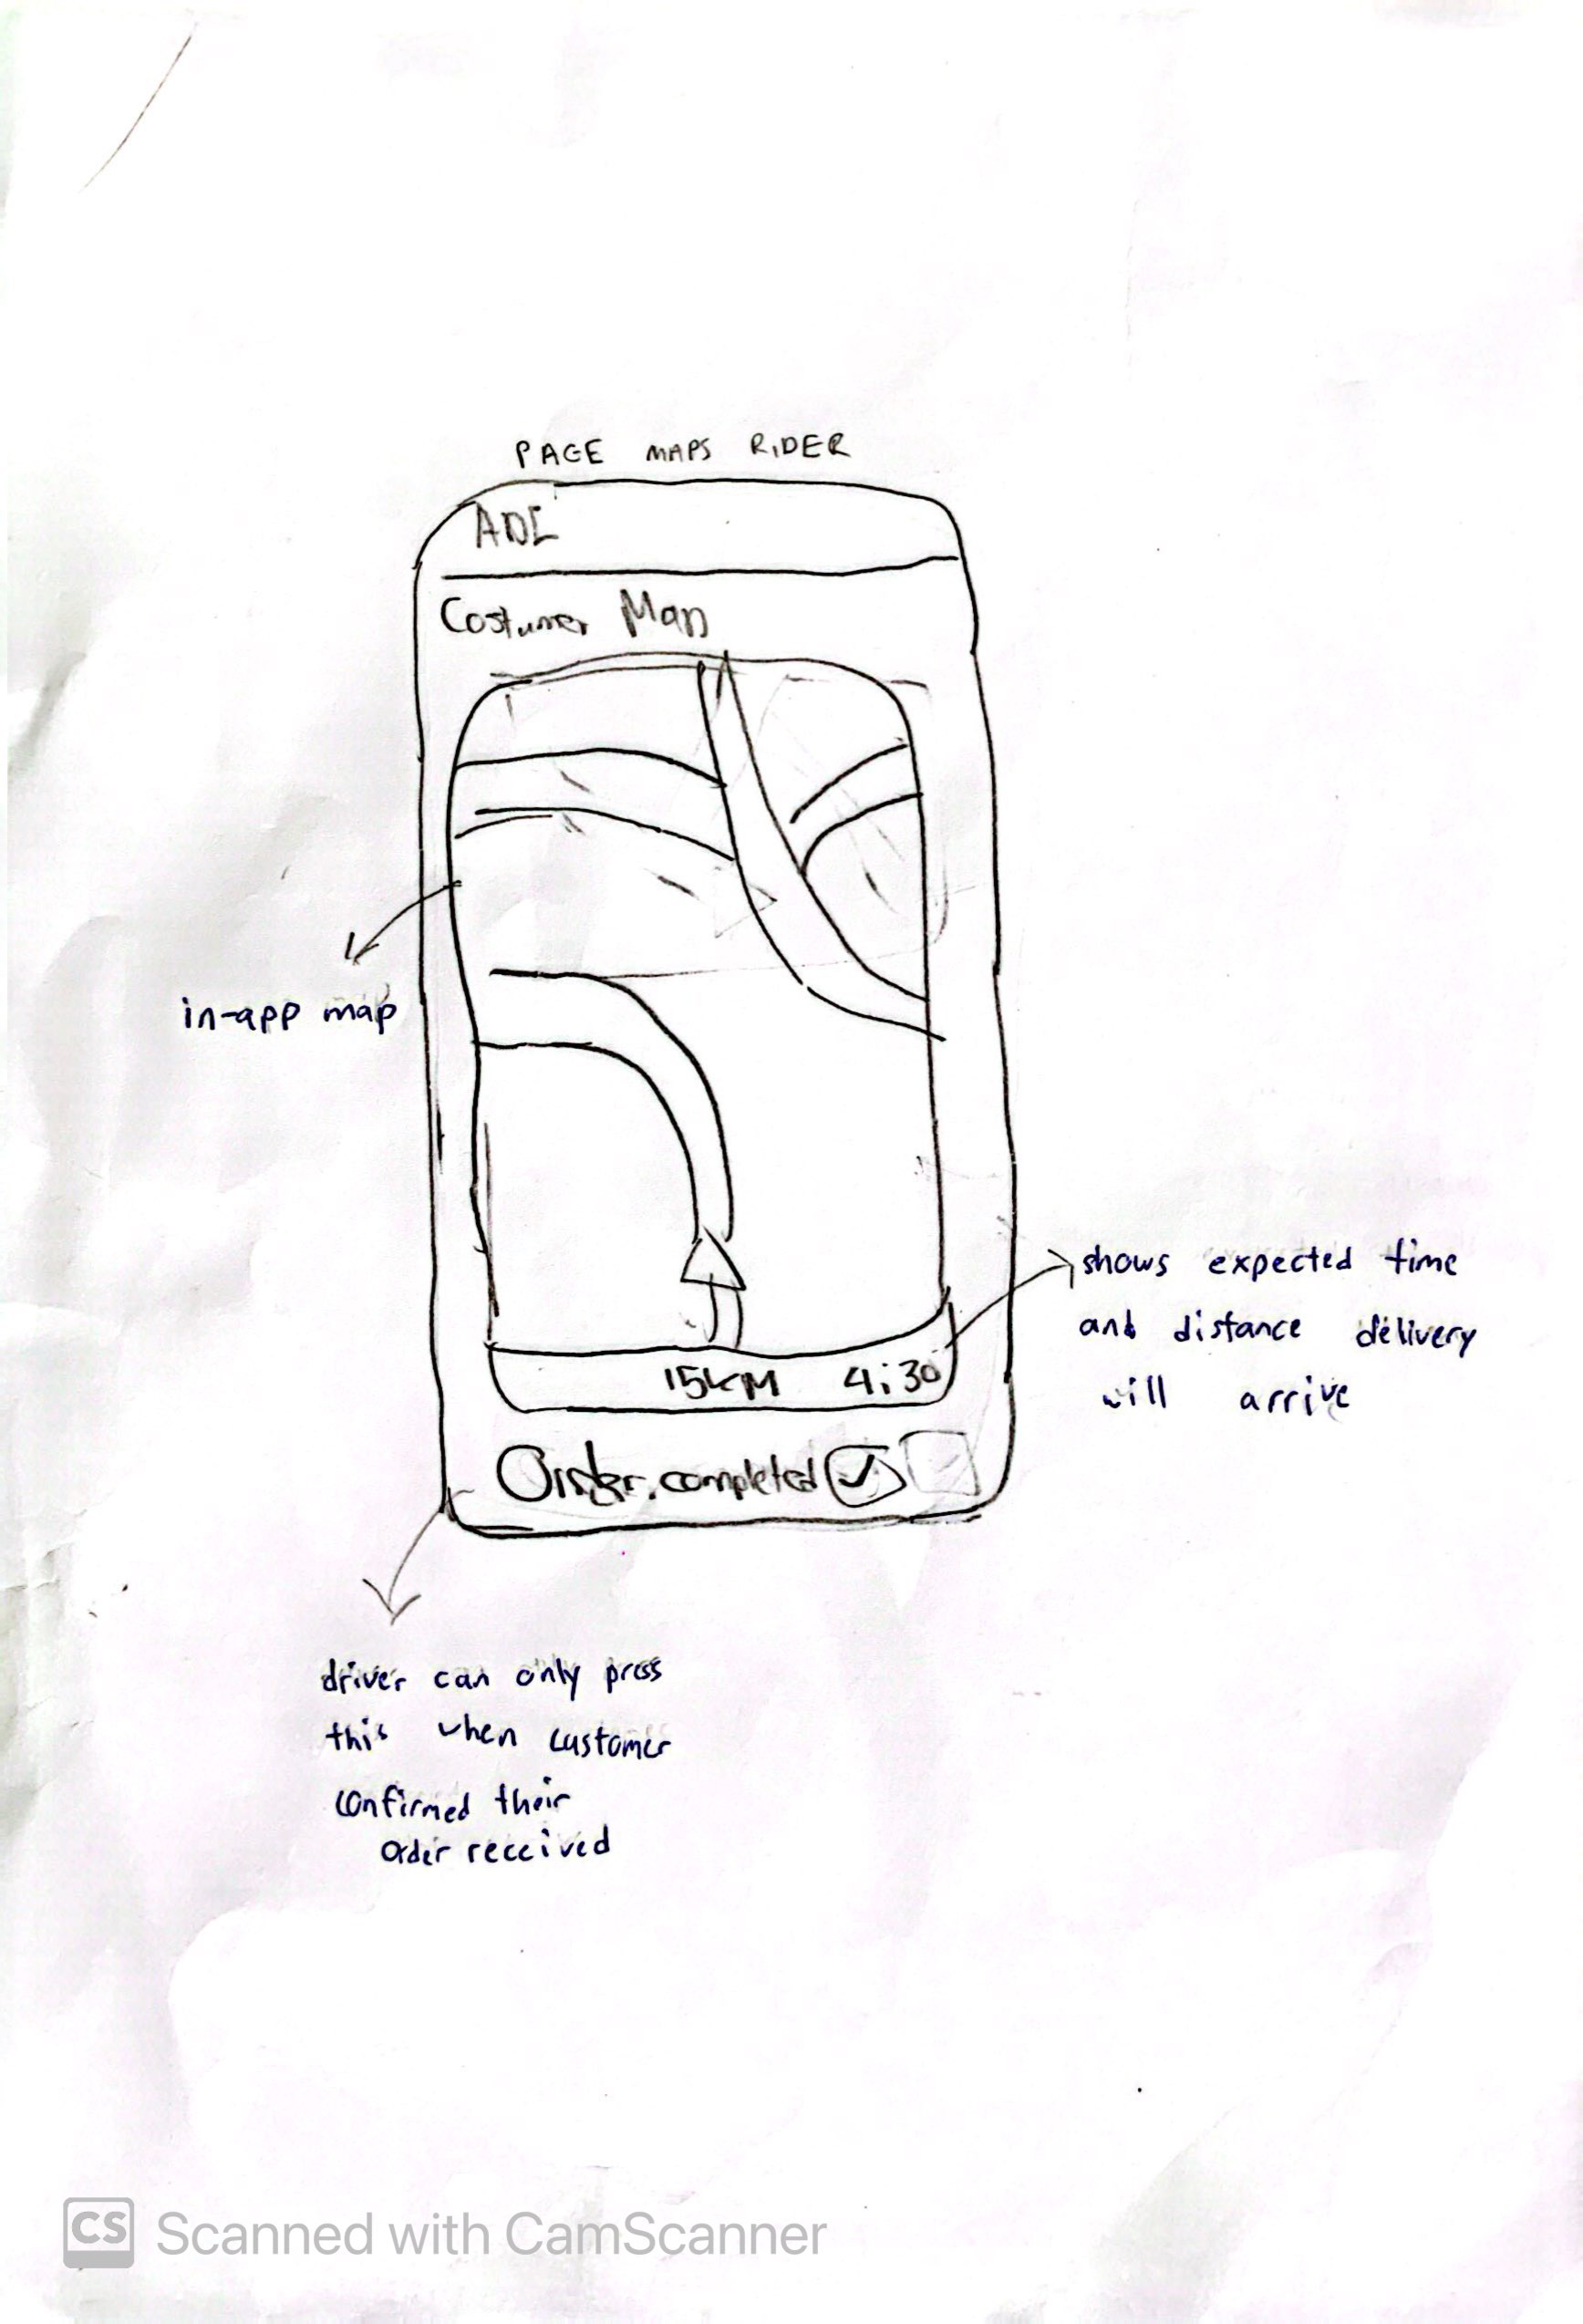 PAGE MAPS RIDER
ADL
Costumer Map
in-app map
shows expected time
and distance delivery
will arrive
15KM 4:30
Order completed
driver can only press
this when customer
confirmed their
order received
CS Scanned with CamScanner